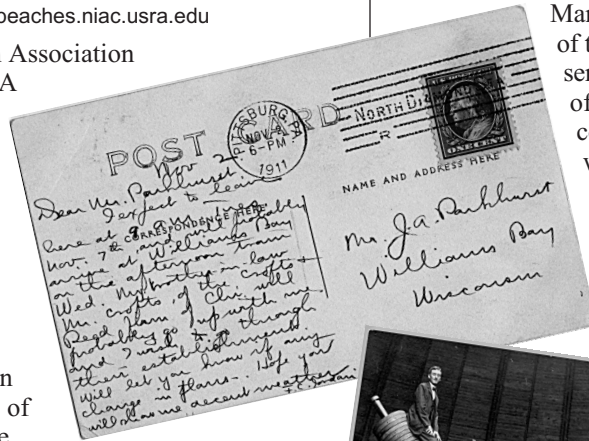 peaches.niac.usra.edu
Association
A
Mar
of t
ser
of
co
w
POST CARD
PITTSBURG, PA
NOV 2
6-PM
1911
NORTH DI
R
ONE CENT
NAME AND ADDRESS HERE
CORRESPONDENCE HERE
Nov 2
Dear Mr. Parkhurst
I expect to leave
here at 9 a.m.
Nov. 7th and will probably
arrive at Williams Bay
on the afternoon train
Wed. My brother in law
Mr. Crofts, of the Crofts &
Reed of Chi. will
probably go up with me
and I wish to go through
their establishment
Will let you know if any
change in plans. Hope you
will show me decent weather.
F.C. Jordan
Mr. J.A. Parkhurst
Williams Bay
Wisconsin
n
of
e